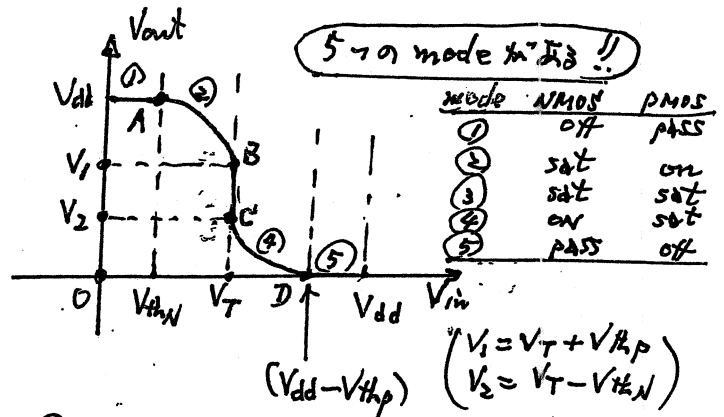 Vout
5つの mode がある!!
① ②
Vdd
A
mode NMOS PMOS
① off pass
② sat on
③ sat sat
④ on sat
⑤ pass off
V1 B
V2 C
④ ⑤
O VthN VT D Vdd Vin
(Vdd-Vthp)
(V1 = VT + Vthp
V2 = VT - VthN)